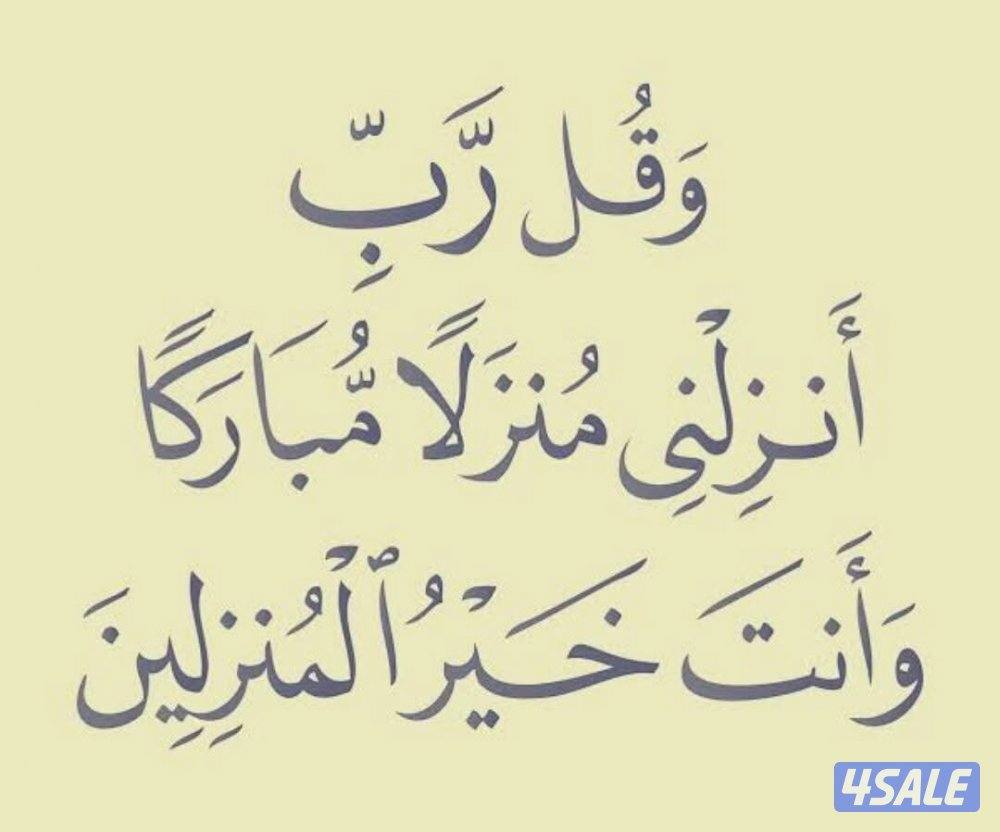 وَقُل رَّبِّ
أَنـزِلْنِى مُنزَلًا مُّبَارَكًا
وَأَنتَ خَيْرُ ٱلْمُنزِلِينَ
4SALE